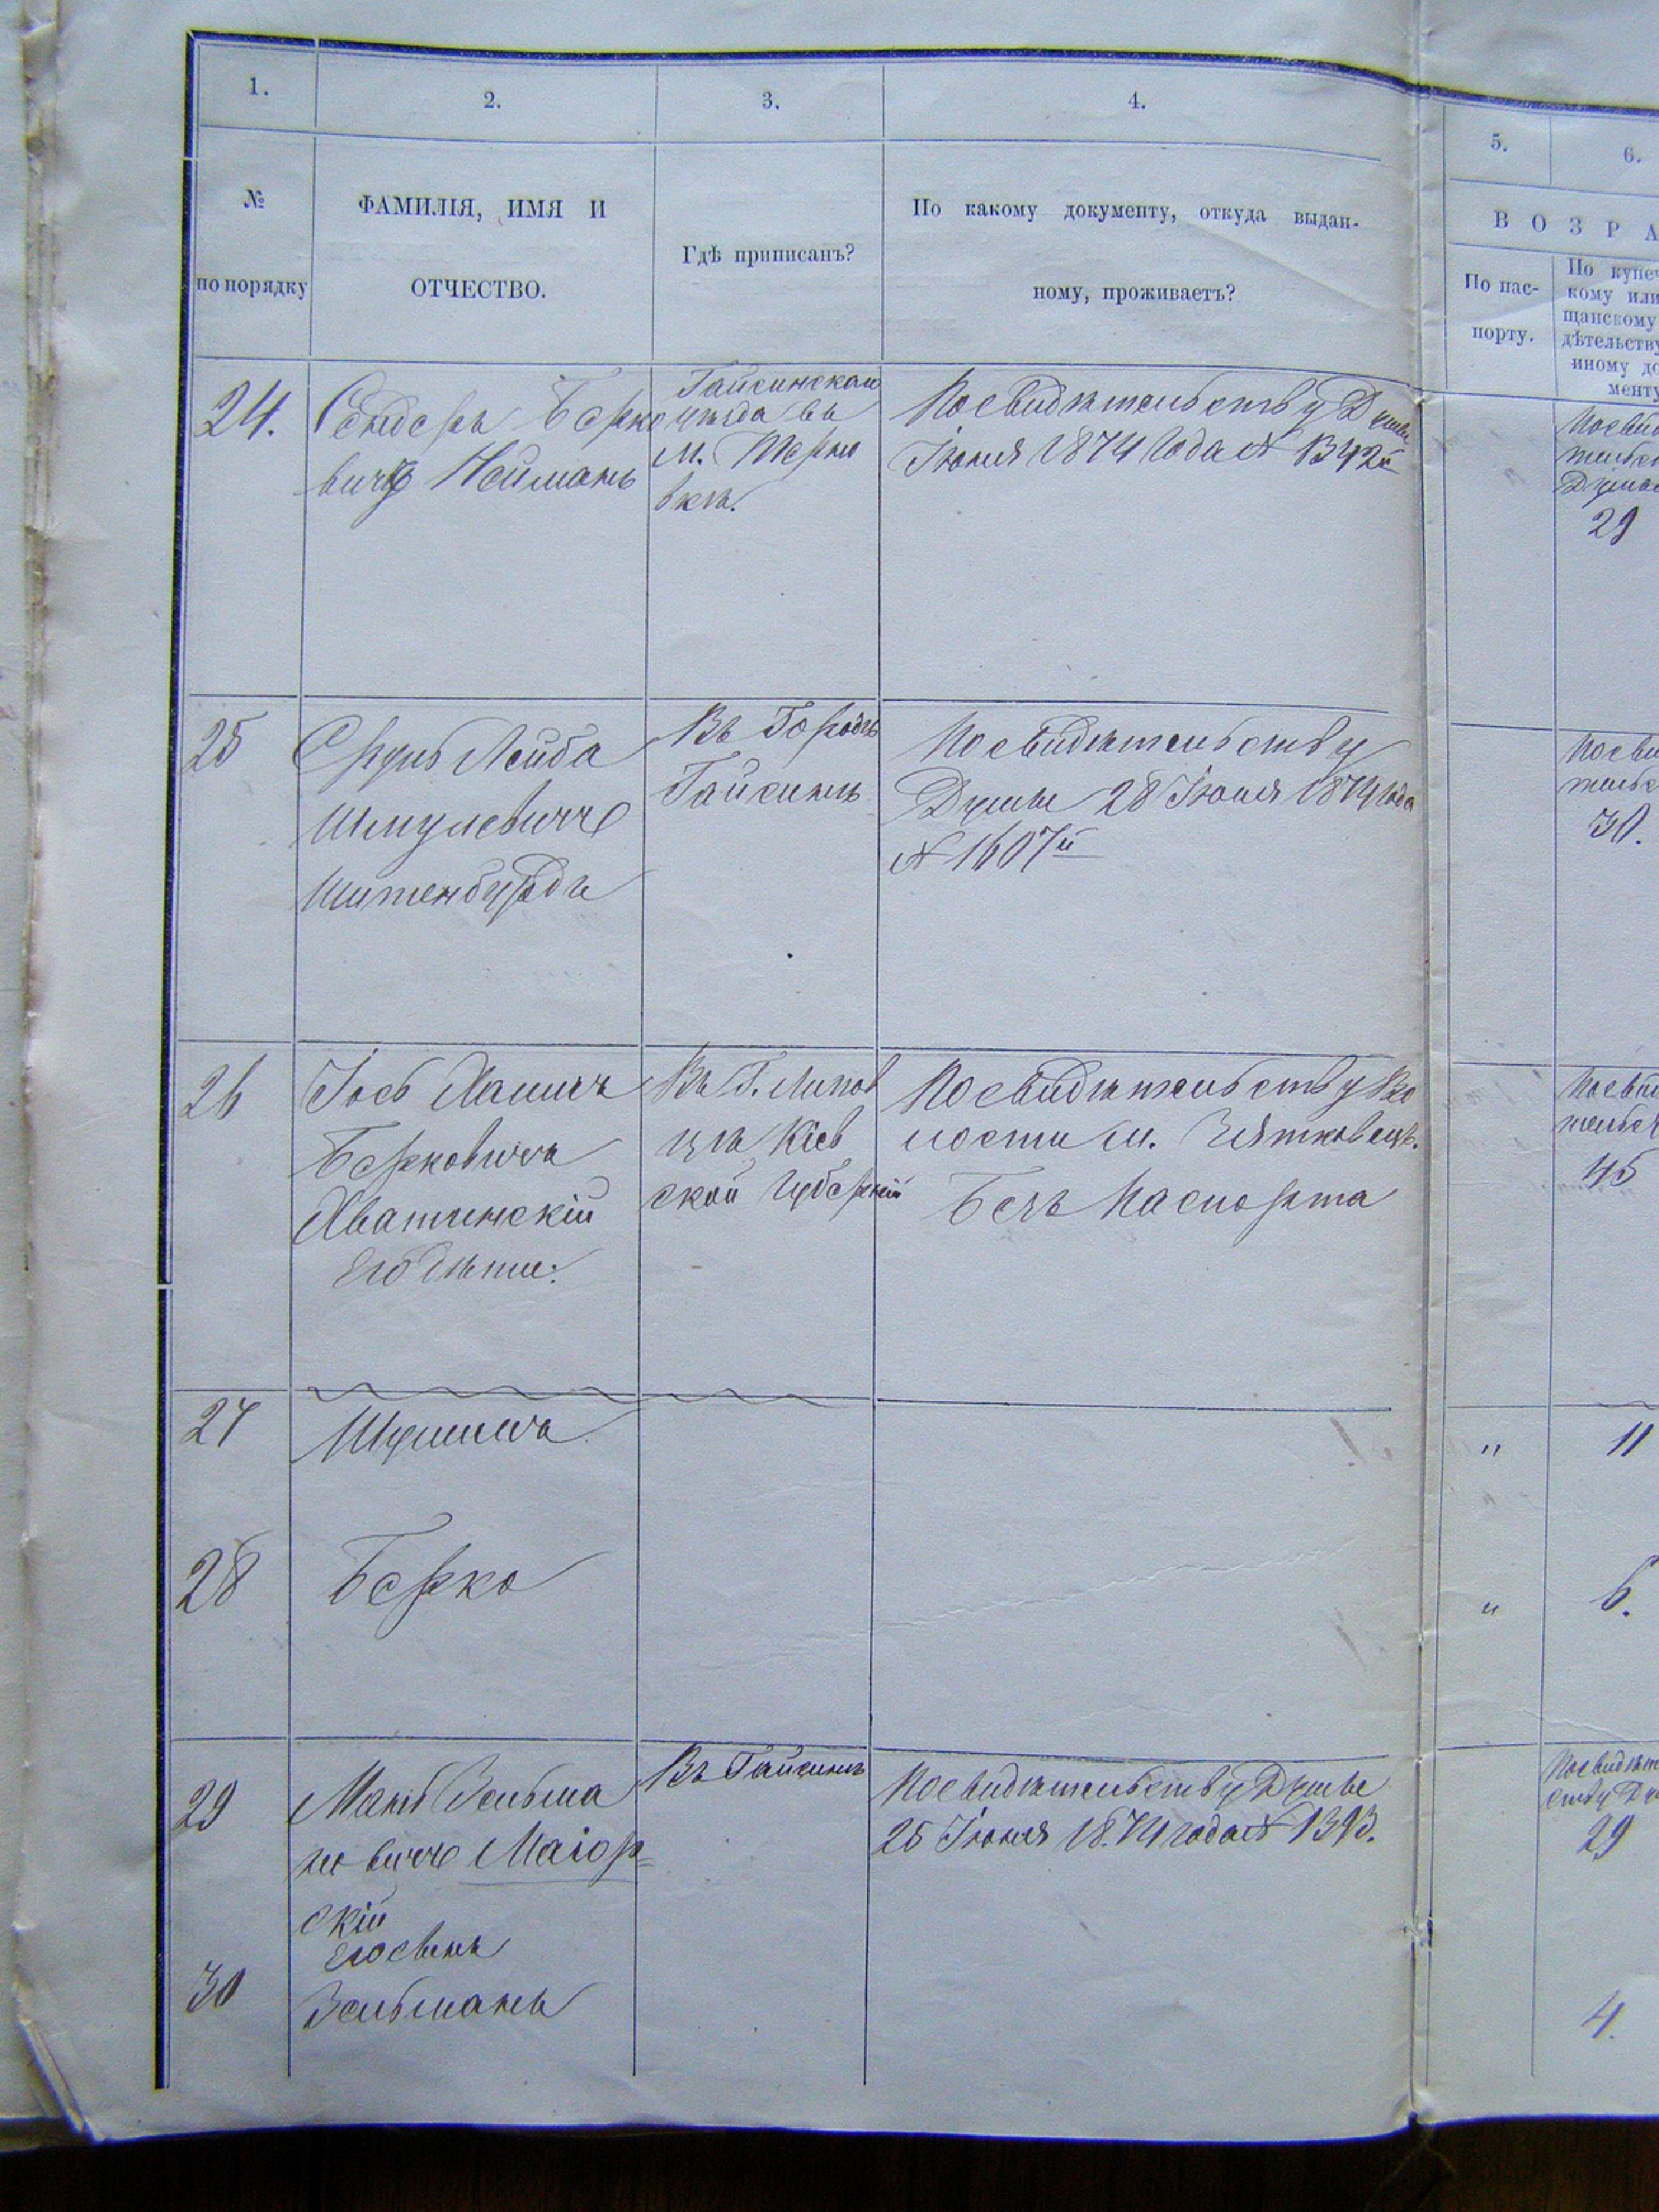 1.
2.
3.
4.
5.
6.
№
по порядку
ФАМИЛІЯ, ИМЯ И
ОТЧЕСТВО.
Гдѣ приписанъ?
По какому документу, откуда выдан-
ному, проживаетъ?
ВОЗРА
По пас-
порту.
По купеч
кому или
щанскому
дѣтельству
иному до
менту
24.
Сендеръ Берко
вичъ Нейманъ
Гайсинскаго
уѣзда въ
м. Терно
вкѣ.
Посвидѣтельству Думы
Іюня 1874 года № 1342й
Посвид
тельс
Думы
29
25
Сруль Лейба
Шмулевичъ
Въ Городѣ
Гайсинѣ
Посвидѣтельству
Думы 28 Іюня 1874 года
№ 1607й
Посви
тельс
30.
26
Іось Хаимъ
Берковичъ
Хватинскій
его дѣти:
Въ Г. Липов
цѣ Кіев
ской Губерніи
Посвидѣтельству Во
лости м.
Безъ Паспорта
Посви
тельс
45
27
"
11
28
Берко
"
6.
29
Зельма
новичъ Маіор=
скій
Въ Гайсинѣ
Посвидѣтельству Думы
25 Іюня 1874 года № 1393.
Посвидѣт
ству Ду
29
его сынъ
30
Зельманъ
4.